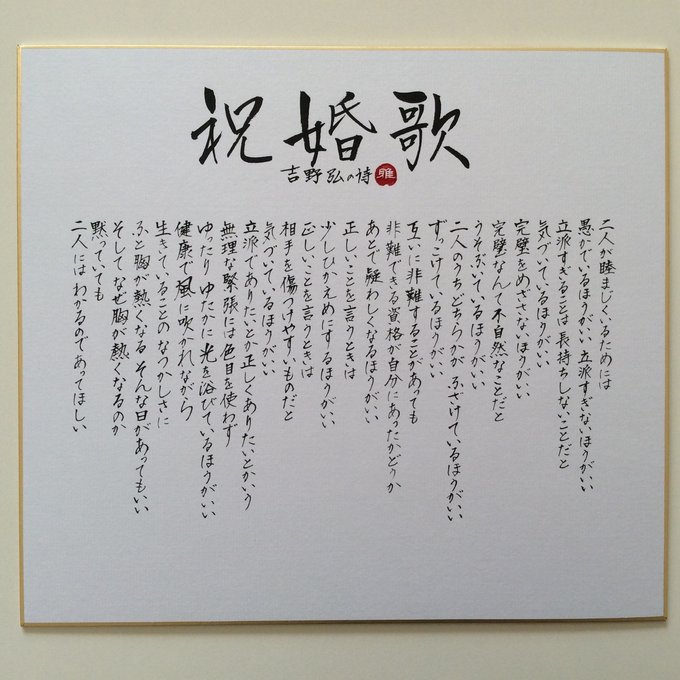 祝婚歌
吉野弘の詩 雅
二人が睦まじくいるためには
愚かでいるほうがいい 立派すぎないほうがいい
立派すぎることは長持ちしないことだと
気づいているほうがいい
完璧をめざさないほうがいい
完璧なんて不自然なことだと
うそぶいているほうがいい
二人のうちどちらかが ふざけているほうがいい
ずっこけているほうがいい
互いに非難することがあっても
非難できる資格が自分にあったかどうか
あとで疑わしくなるほうがいい
正しいことを言うときは
少しひかえめにするほうがいい
正しいことを言うときは
相手を傷つけやすいものだと
気づいているほうがいい
立派でありたいとか正しくありたいとかいう
無理な緊張には色目を使わず
ゆったりゆたかに光を浴びているほうがいい
健康で風に吹かれながら
生きていることのなつかしさに
ふと胸が熱くなる そんな日があってもいい
そしてなぜ胸が熱くなるのか
黙っていても
二人にはわかるのであってほしい